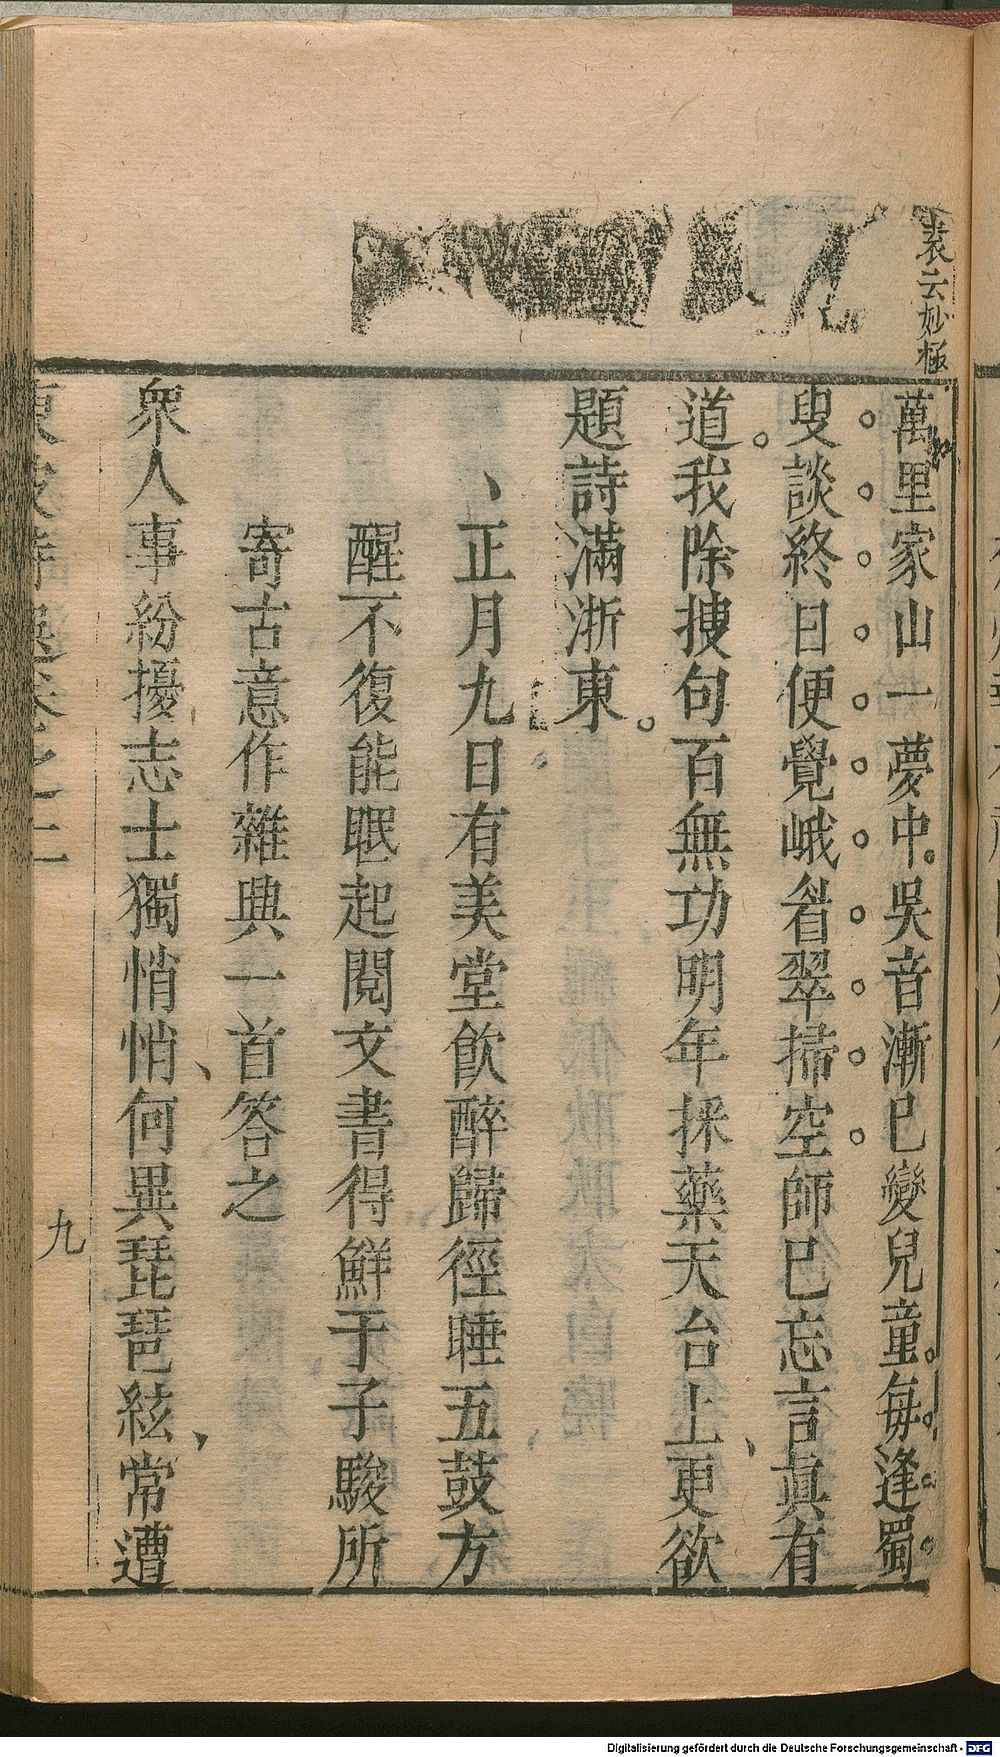 袁云妙極
萬里家山一夢中吳音漸已變兒童每逢蜀
叟談終日便覺峨眉翠掃空師已忘言真有
道我除搜句百無功明年採藥天台上更欲
題詩滿浙東
正月九日有美堂飲醉歸徑睡五鼓方
醒不復能眠起閱文書得鮮于子駿所
寄古意作雜興一首答之
衆人事紛擾志士獨悄悄何異琵琶絃常遭
東坡詩選卷之二
九
Digitalisierung gefördert durch die Deutsche Forschungsgemeinschaft - DFG